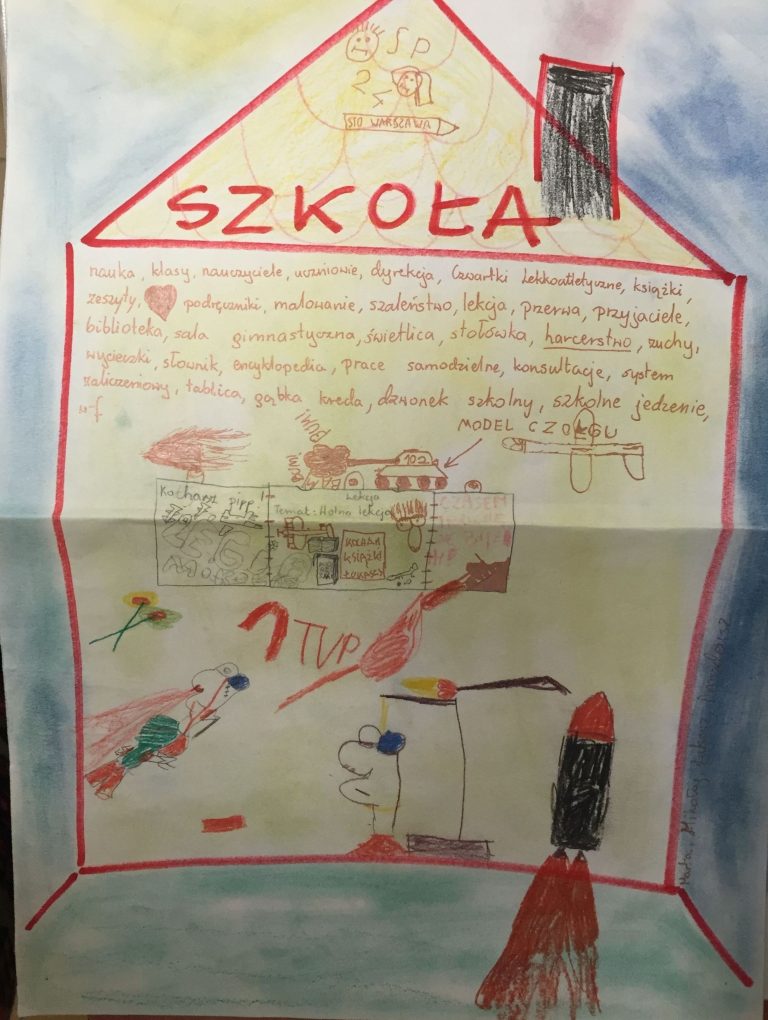 SP
24
STO WARSZAWA
SZKOŁA
nauka, klasy, nauczyciele, uczniowie, dyrekcja, Czwartki Lekkoatletyczne, książki,
zeszyty, podręczniki, malowanie, szaleństwo, lekcja, przerwa, przyjaciele,
biblioteka, sala gimnastyczna, świetlica, stołówka, harcerstwo, zuchy,
wycieczki, słownik, encyklopedia, prace samodzielne, konsultacje, system
zaliczeniowy, tablica, gąbka kreda, dzwonek szkolny, szkolne jedzenie,
w-f
BUM!
BAM
MODEL CZOŁGU
102
Kocham pippi
Lekcja
Temat: Wolna lekcja
KOCHAM
KSIĄŻKI
ŁUKASZ
CZASEM
1 TVP
Marta, Mikołaj